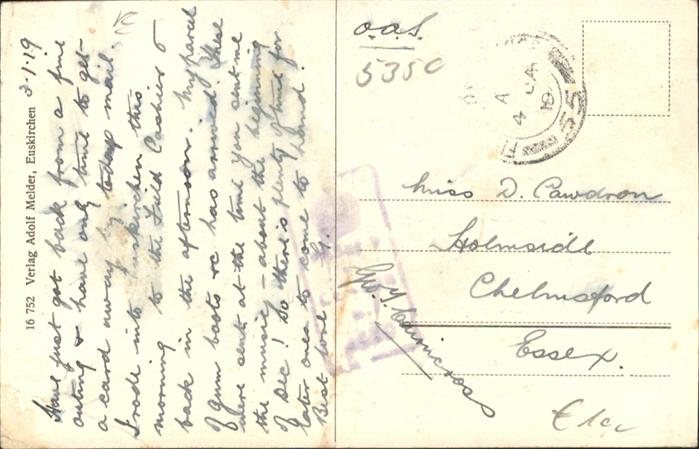 3-1-19
Have just got back from a fine
outing & have only time to get
a card away by today's mail.
I rode into Euskirchen this
morning to the Field Cashier &
back in the afternoon. My parcel
of gum boots &c has arrived. These
were sent at the time you sent me
the music - about the beginning
of Dec! So there's plenty of time for
later ones to come to hand.
Best love G.
16 752 Verlag Adolf Melder, Euskirchen
O.A.S.
5350
A
4 JA
19
55
Miss D. Cawdron
Holmside
Chelmsford
Essex.
Geo. Y. Cairncross